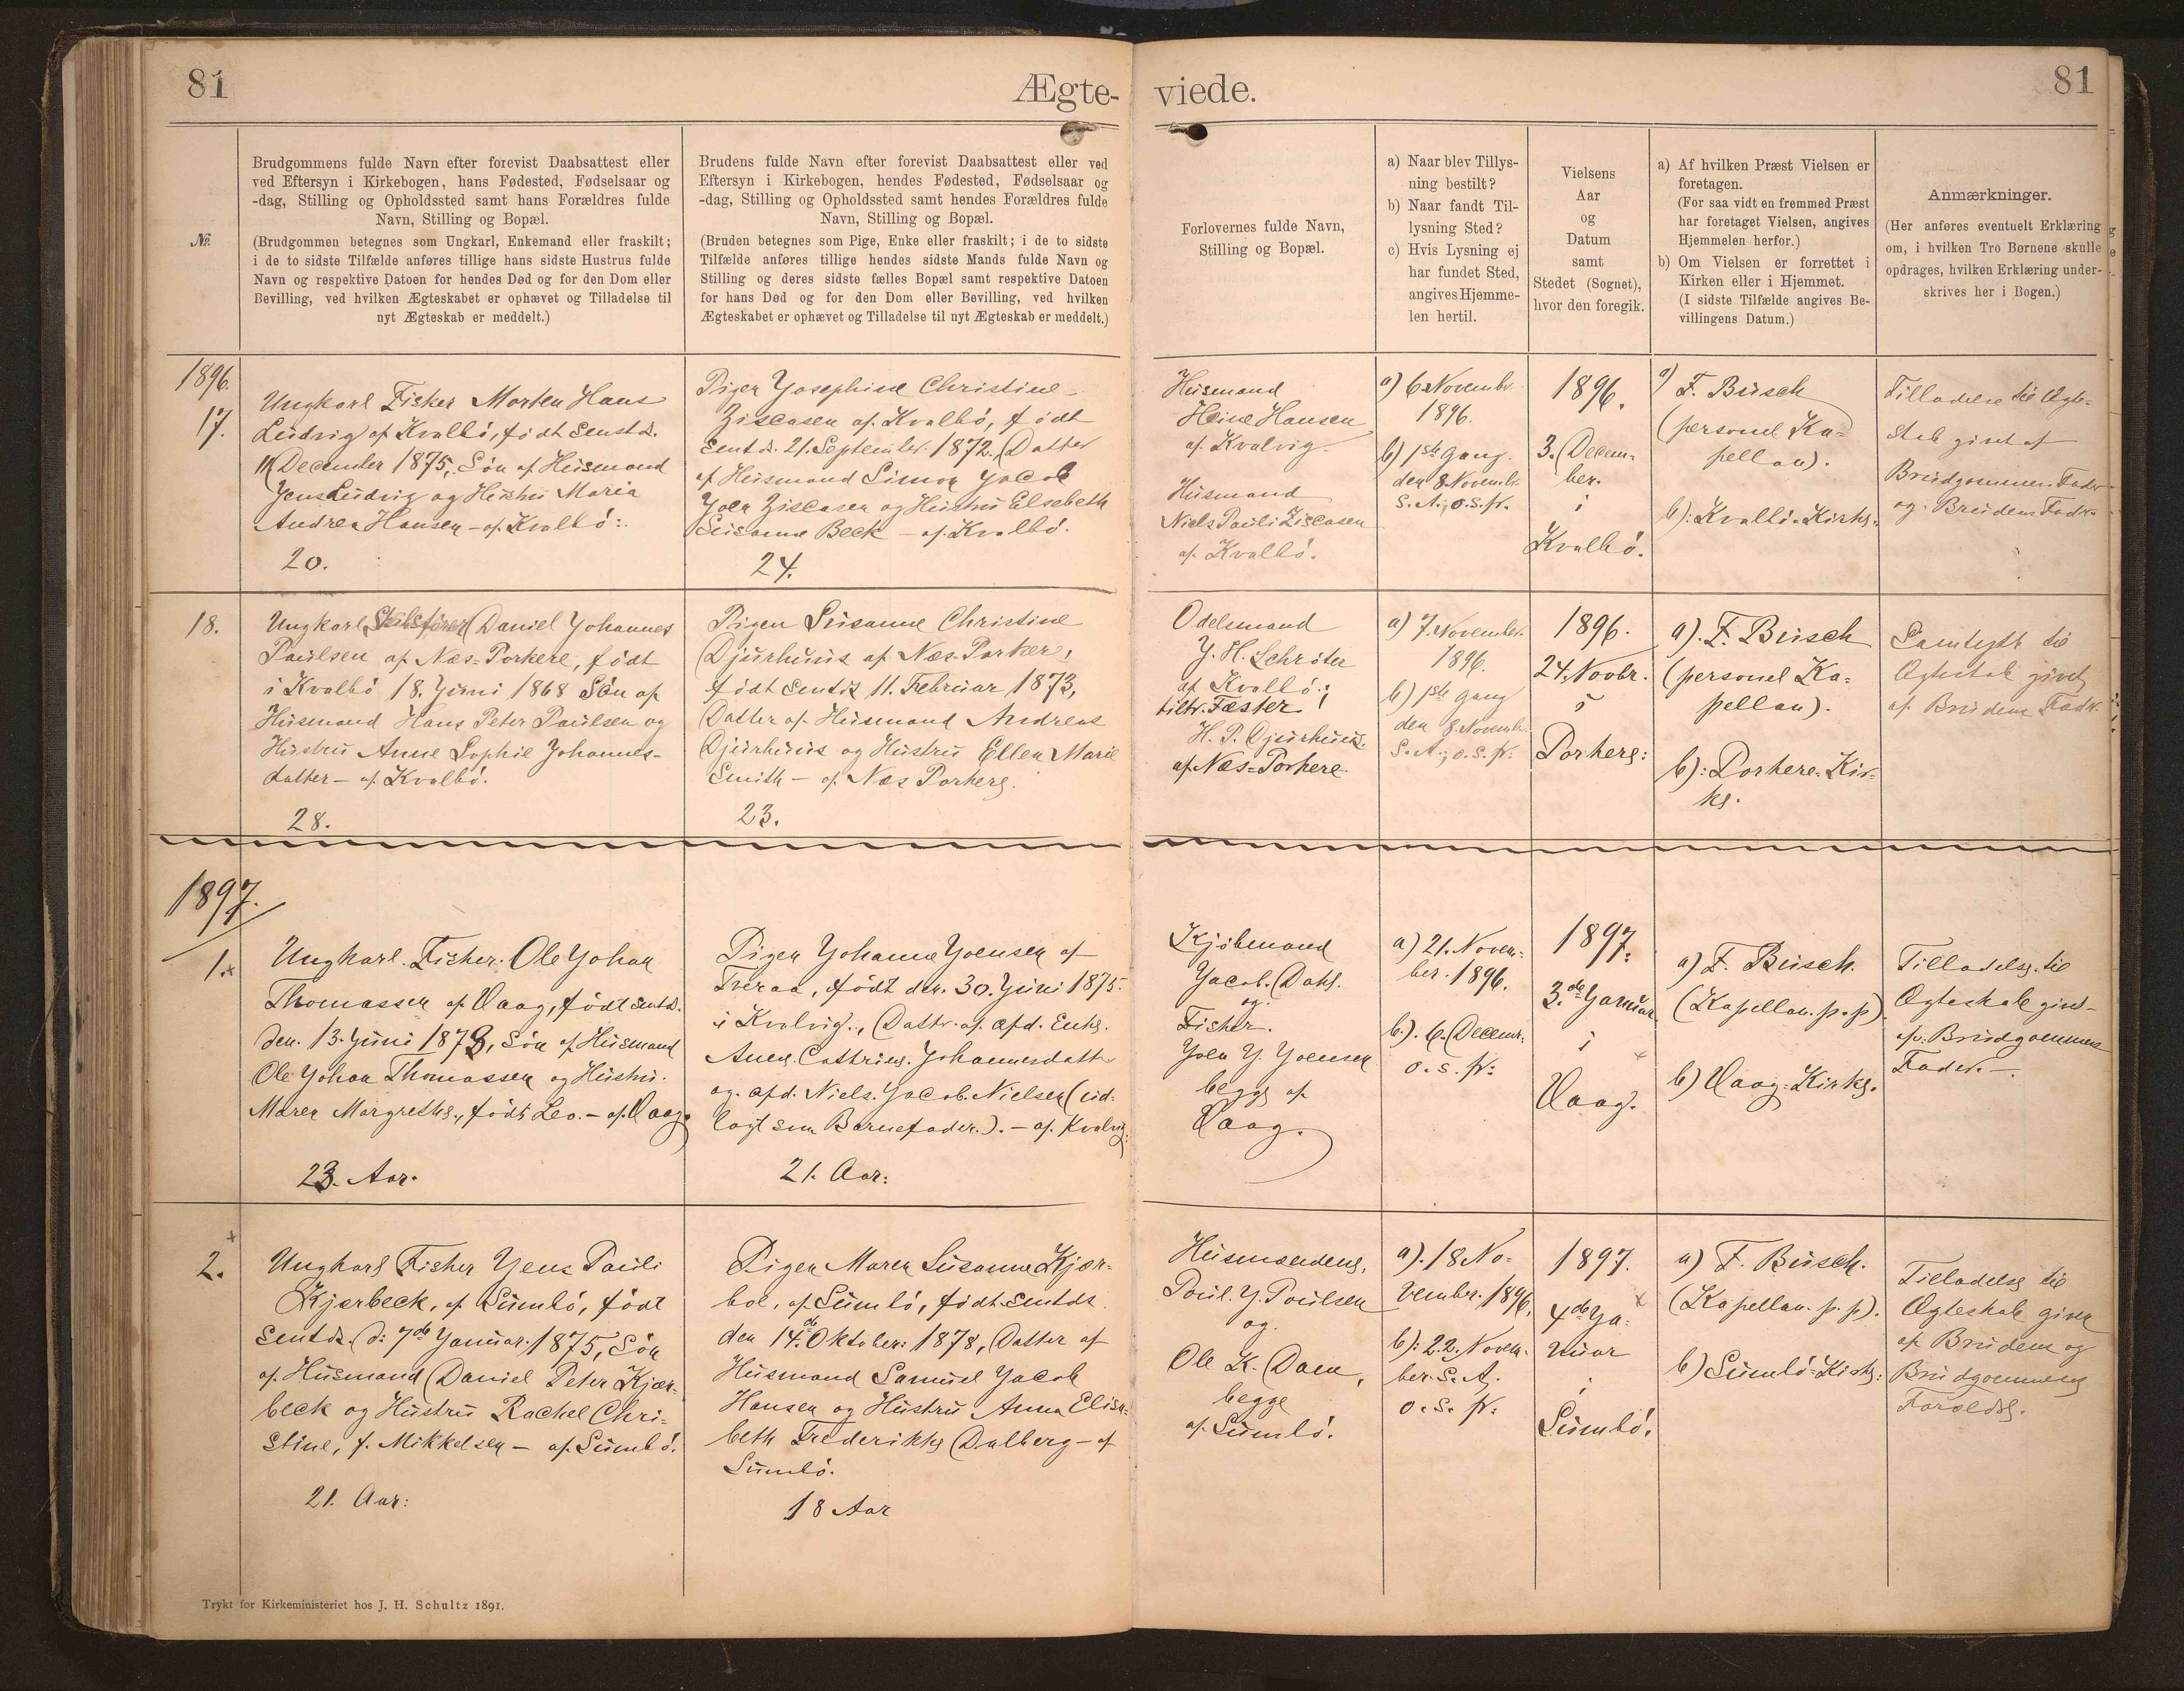 81
Ægte-
viede.
81
№.
Brudgommens fulde Navn efter forevist Daabsattest eller
ved Eftersyn i Kirkebogen, hans Fødested, Fødselsaar og
-dag, Stilling og Opholdssted samt hans Forældres fulde
Navn, Stilling og Bopæl.
(Brudgommen betegnes som Ungkarl, Enkemand eller fraskilt;
i de to sidste Tilfælde anføres tillige hans sidste Hustrus fulde
Navn og respektive Datoen for hendes Død og for den Dom eller
Bevilling, ved hvilken Ægteskabet er ophævet og Tilladelse til
nyt Ægteskab er meddelt.)
Brudens fulde Navn efter forevist Daabsattest eller ved
Eftersyn i Kirkebogen, hendes Fødested, Fødselsaar og
-dag, Stilling og Opholdssted samt hendes Forældres fulde
Navn, Stilling og Bopæl.
(Bruden betegnes som Pige, Enke eller fraskilt; i de to sidste
Tilfælde anføres tillige hendes sidste Mands fulde Navn og
Stilling og deres sidste fælles Bopæl samt respektive Datoen
for hans Død og for den Dom eller Bevilling, ved hvilken
Ægteskabet er ophævet og Tilladelse til nyt Ægteskab er meddelt.)
Forlovernes fulde Navn,
Stilling og Bopæl.
a) Naar blev Tillys-
ning bestilt?
b) Naar fandt Til-
lysning Sted?
c) Hvis Lysning ej
har fundet Sted,
angives Hjemme-
len hertil.
Vielsens
Aar
og
Datum
samt
Stedet (Sognet),
hvor den foregik.
a) Af hvilken Præst Vielsen er
foretagen.
(For saa vidt en fremmed Præst
har foretaget Vielsen, angives
Hjemmelen herfor.)
b) Om Vielsen er forrettet i
Kirken eller i Hjemmet.
(I sidste Tilfælde angives Be-
villingens Datum.)
Anmærkninger.
(Her anføres eventuelt Erklæring
om, i hvilken Tro Børnene skulle
opdrages, hvilken Erklæring under-
skrives her i Bogen.)
1896.
17.
Ungkarl Fisker Morten Hans
Ludvig af Kvalbö, födt Senstds.
11 December 1875, Sön af Husmand
Jens Ludvig og Hustru Maria
Andrea Hansen - af Kvalbö:.
20.
Pigen Josephine Christine
Ziscasen af Kvalbö, födt
Sentds. 21. September 1872. Datter
af Husmand Simon Jacob
Joen Ziscasen og Hustru Elsebeth
Susanne Beck - af Kvalbö.
24.
Husmand
Heine Hansen
af Kvalvig.
Husmand
Niels Pauli Ziscasen
af Kvalbö.
a) 6 Novembr
1896.
b) 1ste Gang
den 8 Novembr.
S. A., o. s. fr.
1896.
3. Decem-
ber.
i
Kvalbö.
a) F. Busch
(personel Ka-
pellan).
b): Kvalbö-Kirke.
Tilladelse til Ægte-
skab givet af
Brudgommens Fader
og Brudens Fader.
18.
Ungkarl Daniel Johannes
Paulsen af Næs-Porkere, födt
i Kvalbö 18. Juni 1868 Sön af
Husmand Hans Peter Paulsen og
Hustru Anne Sophie Johannes-
datter - af Kvalbö.
28.
Pigen Susanne Christine
Djurhuus af Næs-Porkere,
födt Sentds 11. Februar 1873,
Datter af Husmand Andreas
Djurhuus og Hustru Ellen Marie
Smith - af Næs Porkere.
23.
Odelsmand
J. H. Schröter
af Kvalbö:
tiltr. Fæster
H. P. Djurhuus.
af Næs-Porkere.
a) 7. November
1896.
b) 1ste Gang
den 8 Novembr.
S. A., o. s. fr.
1896.
24. Novbr.
i
Porkere:
a). F. Busch
(personel Ka-
pellan).
b): Porkere-Kir-
ke.
Samtykke til
Ægteskab givet
af Brudens Fader.
1897.
1.
Ungkarl. Fisker. Ole Johan
Thomassen af Vaag, födt Sentds.
den. 13. Juni 1873, Sön af Husmand
Ole Johan Thomassen og Hustru.
Maren Margrethe, födt Leo. - af Vaag.
23. Aar.
Pigen Johanne Joensen af
Tveraa, födt den. 30. Juni 1875.
i Kvalvig., Datter af afd. Enke.
Anne. Cathrine. Johannesdatter
og. afd. Niels. Jacob. Nielsen (ud-
lagt som Barnefader.). - af. Kvalvig.
21. Aar:
Kjöbmand
Jacob. Dahl.
og.
Fisker.
Joen J. Joensen
begge af
Vaag.
a) 21. Novem-
ber. 1896.
b.). 6. Decembr.
o. s. fr:
1897.
3.de Januar
i
Vaag.
a) F. Busch.
(Kapellan. p. p.)
b) Vaag-Kirke.
Tilladelse. til
Ægteskab givet
af. Brudgommens
Fader. -.
2.
Ungkarl Fisker Jens Pauli
Kjærbeck, af Sumbö, födt
Sentds. d: 7de Januar. 1875, Sön
af. Husmand Daniel Peter Kjær-
beck og Hustru Rachel Chri-
stine, f. Mikkelsen - af. Sumbö.
21. Aar:
Pigen Maren Susanne Kjær-
boe, af Sumbö, födt Sentds.
den 14de Oktober: 1878, Datter af
Husmand Samuel Jacob
Hansen og Hustru Anna Elisa-
beth Frederikke Dalberg - af
Sumbö.
18 Aar
Husmændene,
Poul. J. Poulsen
og.
Ole K. Dam,
begge
af. Sumbö.
a). 18 No-
vember. 1896,
b): 22. Novem-
ber. S. A.
o. s. fr:
1897.
4de Ja-
nuar
i
Sumbö.
a) F. Busch.
(Kapellan. p. p).
b) Sumbö-Kirke:
Tilladelse til
Ægteskab given
af Brudens og
Brudgommens
Forældre.
Trykt for Kirkeministeriet hos J. H. Schultz 1891.